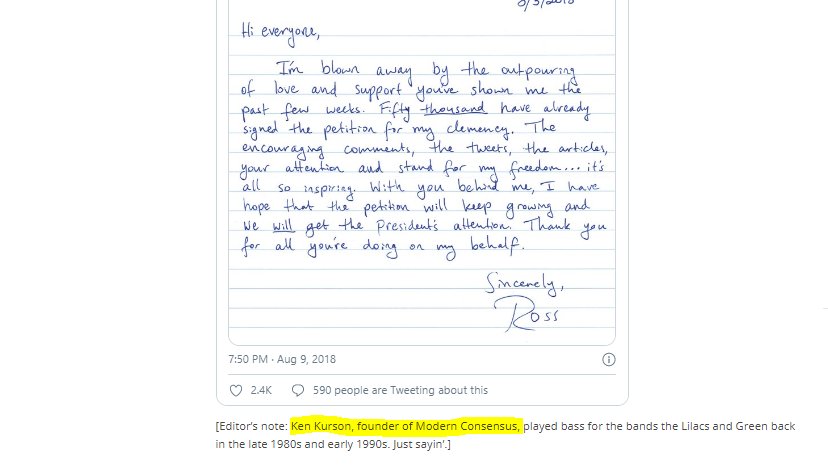 8/3/2018
Hi everyone,
I'm blown away by the outpouring
of love and support you've shown me the
past few weeks. Fifty thousand have already
signed the petition for my clemency. The
encouraging comments, the tweets, the articles,
your attention and stand for my freedom... it's
all so inspiring. With you behind me, I have
hope that the petition will keep growing and
we will get the President's attention. Thank you
for all you're doing on my behalf.
Sincerely,
Ross
7:50 PM · Aug 9, 2018
2.4K 590 people are Tweeting about this
[Editor's note: Ken Kurson, founder of Modern Consensus, played bass for the bands the Lilacs and Green back
in the late 1980s and early 1990s. Just sayin'.]